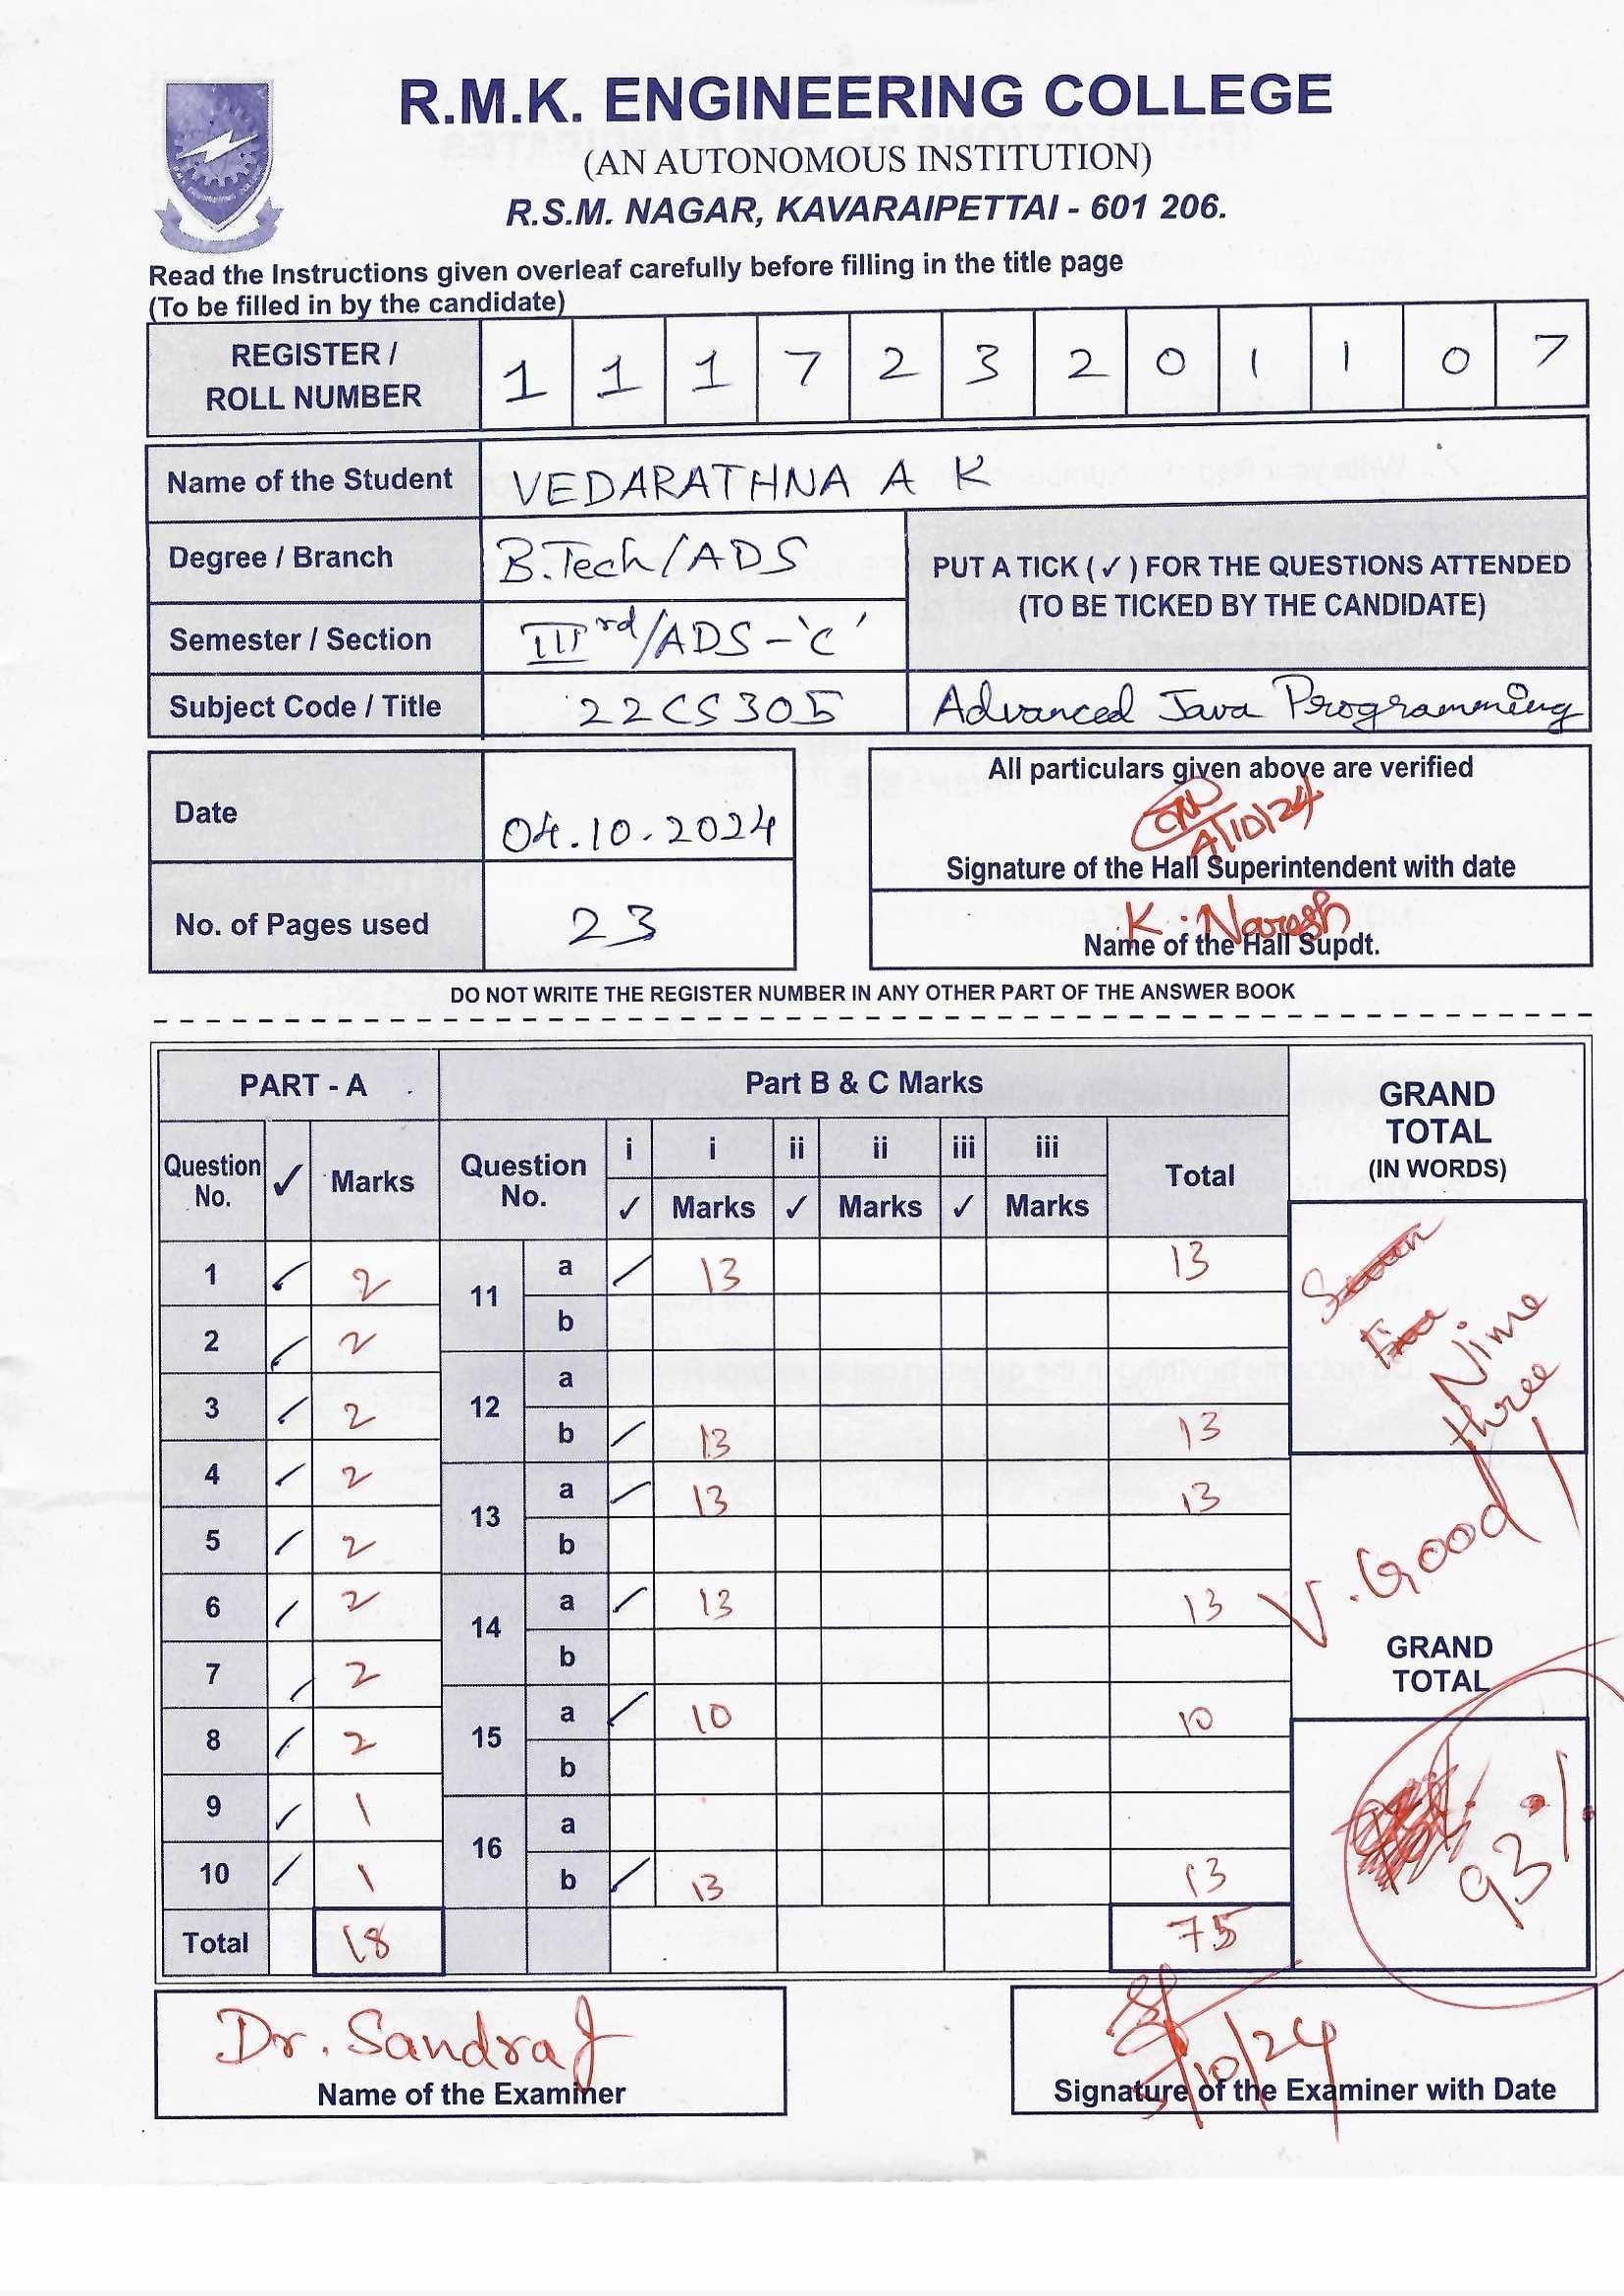 R.M.K. ENGINEERING COLLEGE
(AN AUTONOMOUS INSTITUTION)
R.S.M. NAGAR, KAVARAIPETTAI - 601 206.
Read the Instructions given overleaf carefully before filling in the title page
(To be filled in by the candidate)
REGISTER / ROLL NUMBER 1 1 1 7 2 3 2 0 1 1 0 7
Name of the Student VEDARATHNA A K
Degree / Branch B.Tech/ADS
PUT A TICK (✓) FOR THE QUESTIONS ATTENDED
(TO BE TICKED BY THE CANDIDATE)
Semester / Section IIIrd/ADS-'C'
Subject Code / Title 22CS305 Advanced Java Programming
Date 04.10.2024
All particulars given above are verified
4/10/24
Signature of the Hall Superintendent with date
No. of Pages used 23
K. Naresh
Name of the Hall Supdt.
DO NOT WRITE THE REGISTER NUMBER IN ANY OTHER PART OF THE ANSWER BOOK
PART - A Part B & C Marks GRAND TOTAL (IN WORDS)
Question No. ✓ Marks Question No. i ✓ i Marks ii ✓ ii Marks iii ✓ iii Marks Total
1 ✓ 2 11 a ✓ 13 13
2 ✓ 2 b
3 ✓ 2 12 a
b ✓ 13 13
4 ✓ 2 13 a ✓ 13 13
5 ✓ 2 b
6 ✓ 2 14 a ✓ 13 13
7 ✓ 2 b
8 ✓ 2 15 a ✓ 10 10
b
9 ✓ 1 16 a
10 ✓ 1 b ✓ 13 13
Total 18 75
Nine
three
V. Good !
GRAND
TOTAL
93 %
Dr. Sandra J
Name of the Examiner
/10/24
Signature of the Examiner with Date